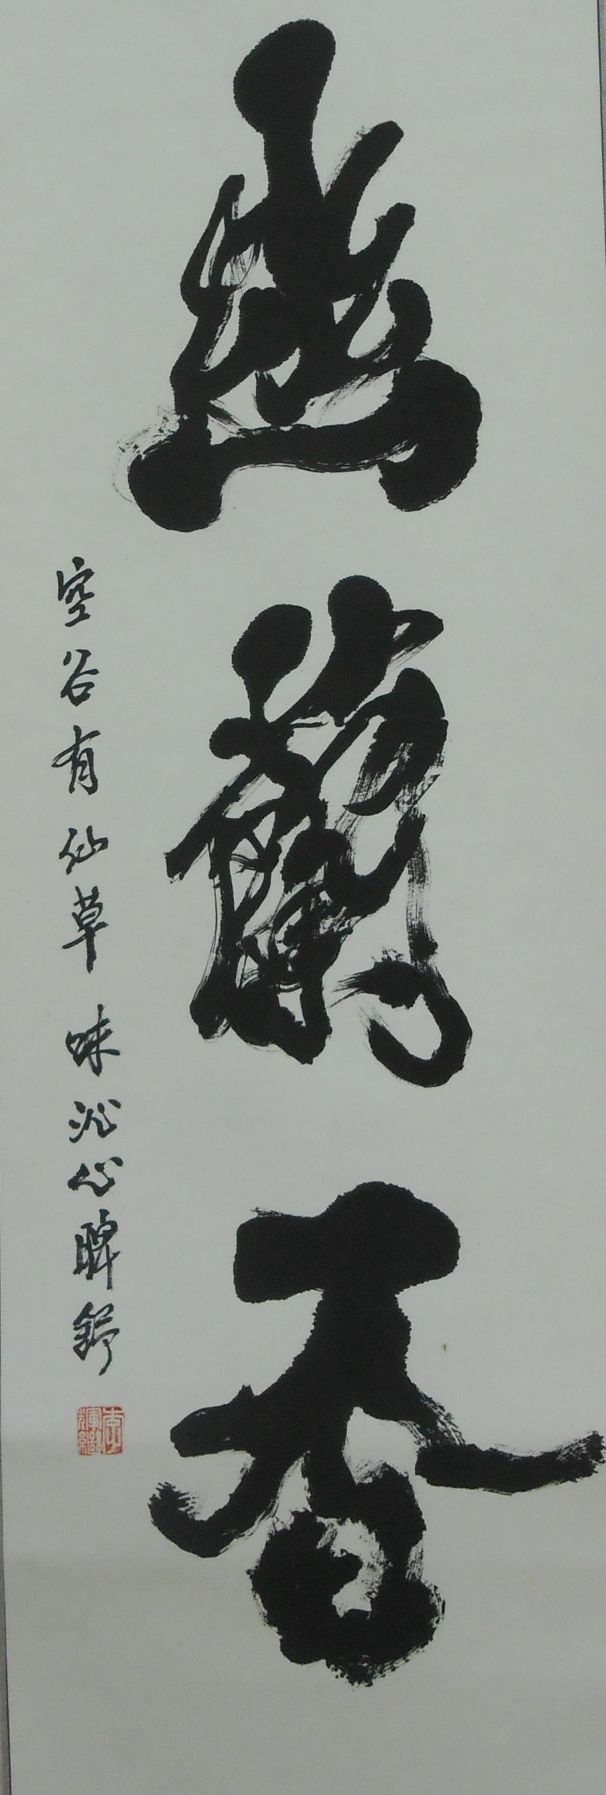 幽蘭香
空谷有仙草 味沁心脾舒